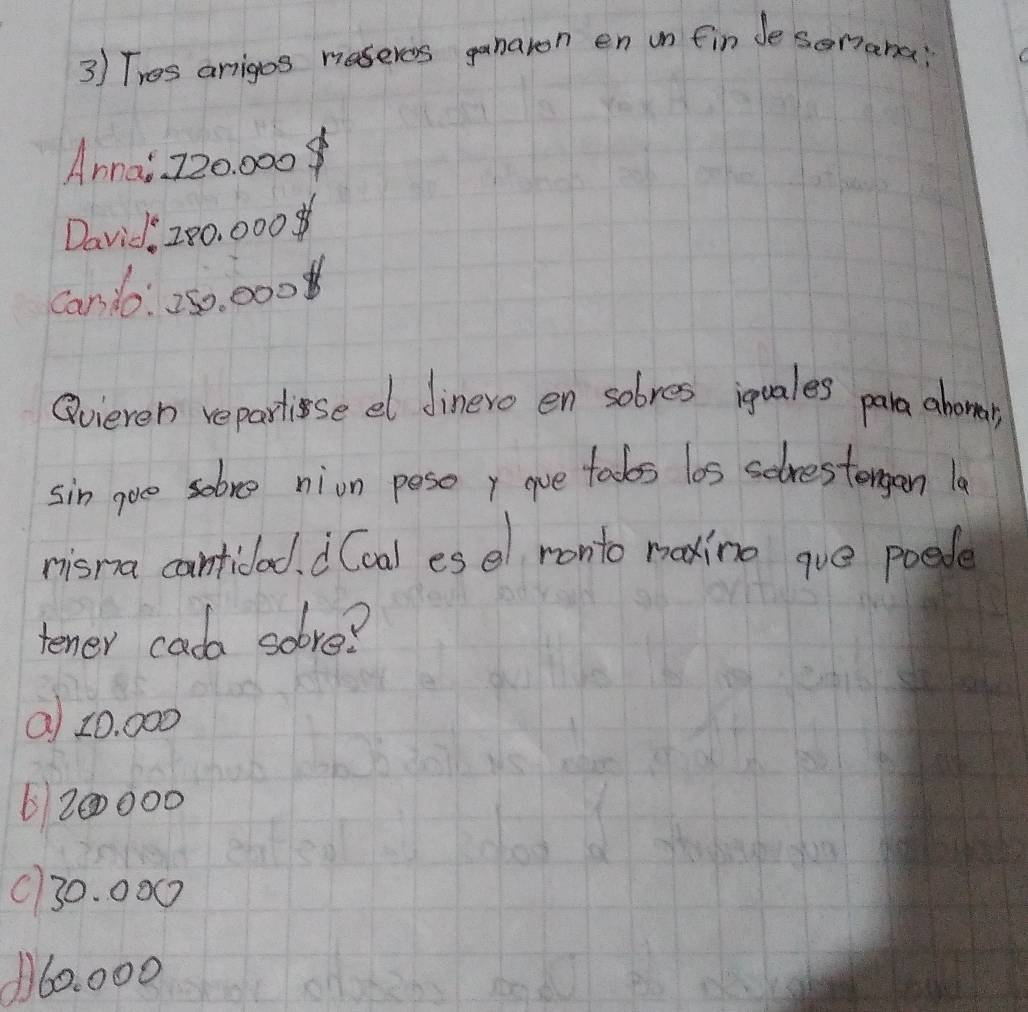 3) Tres amigos meseros ganaron en un fin de semana:
Anna: 120.000 $
David: 180.000 $
Camilo: 150.000 $
Quieren repartisse el dinero en sobres iguales para ahorrar,
sin que sobre ni un peso y que todos los sobres tengan la
misma cantidad. ¿Cual es el monto maximo que puede
tener cada sobre?
a) 10.000
b) 20000
c) 30.000
d) 60.000